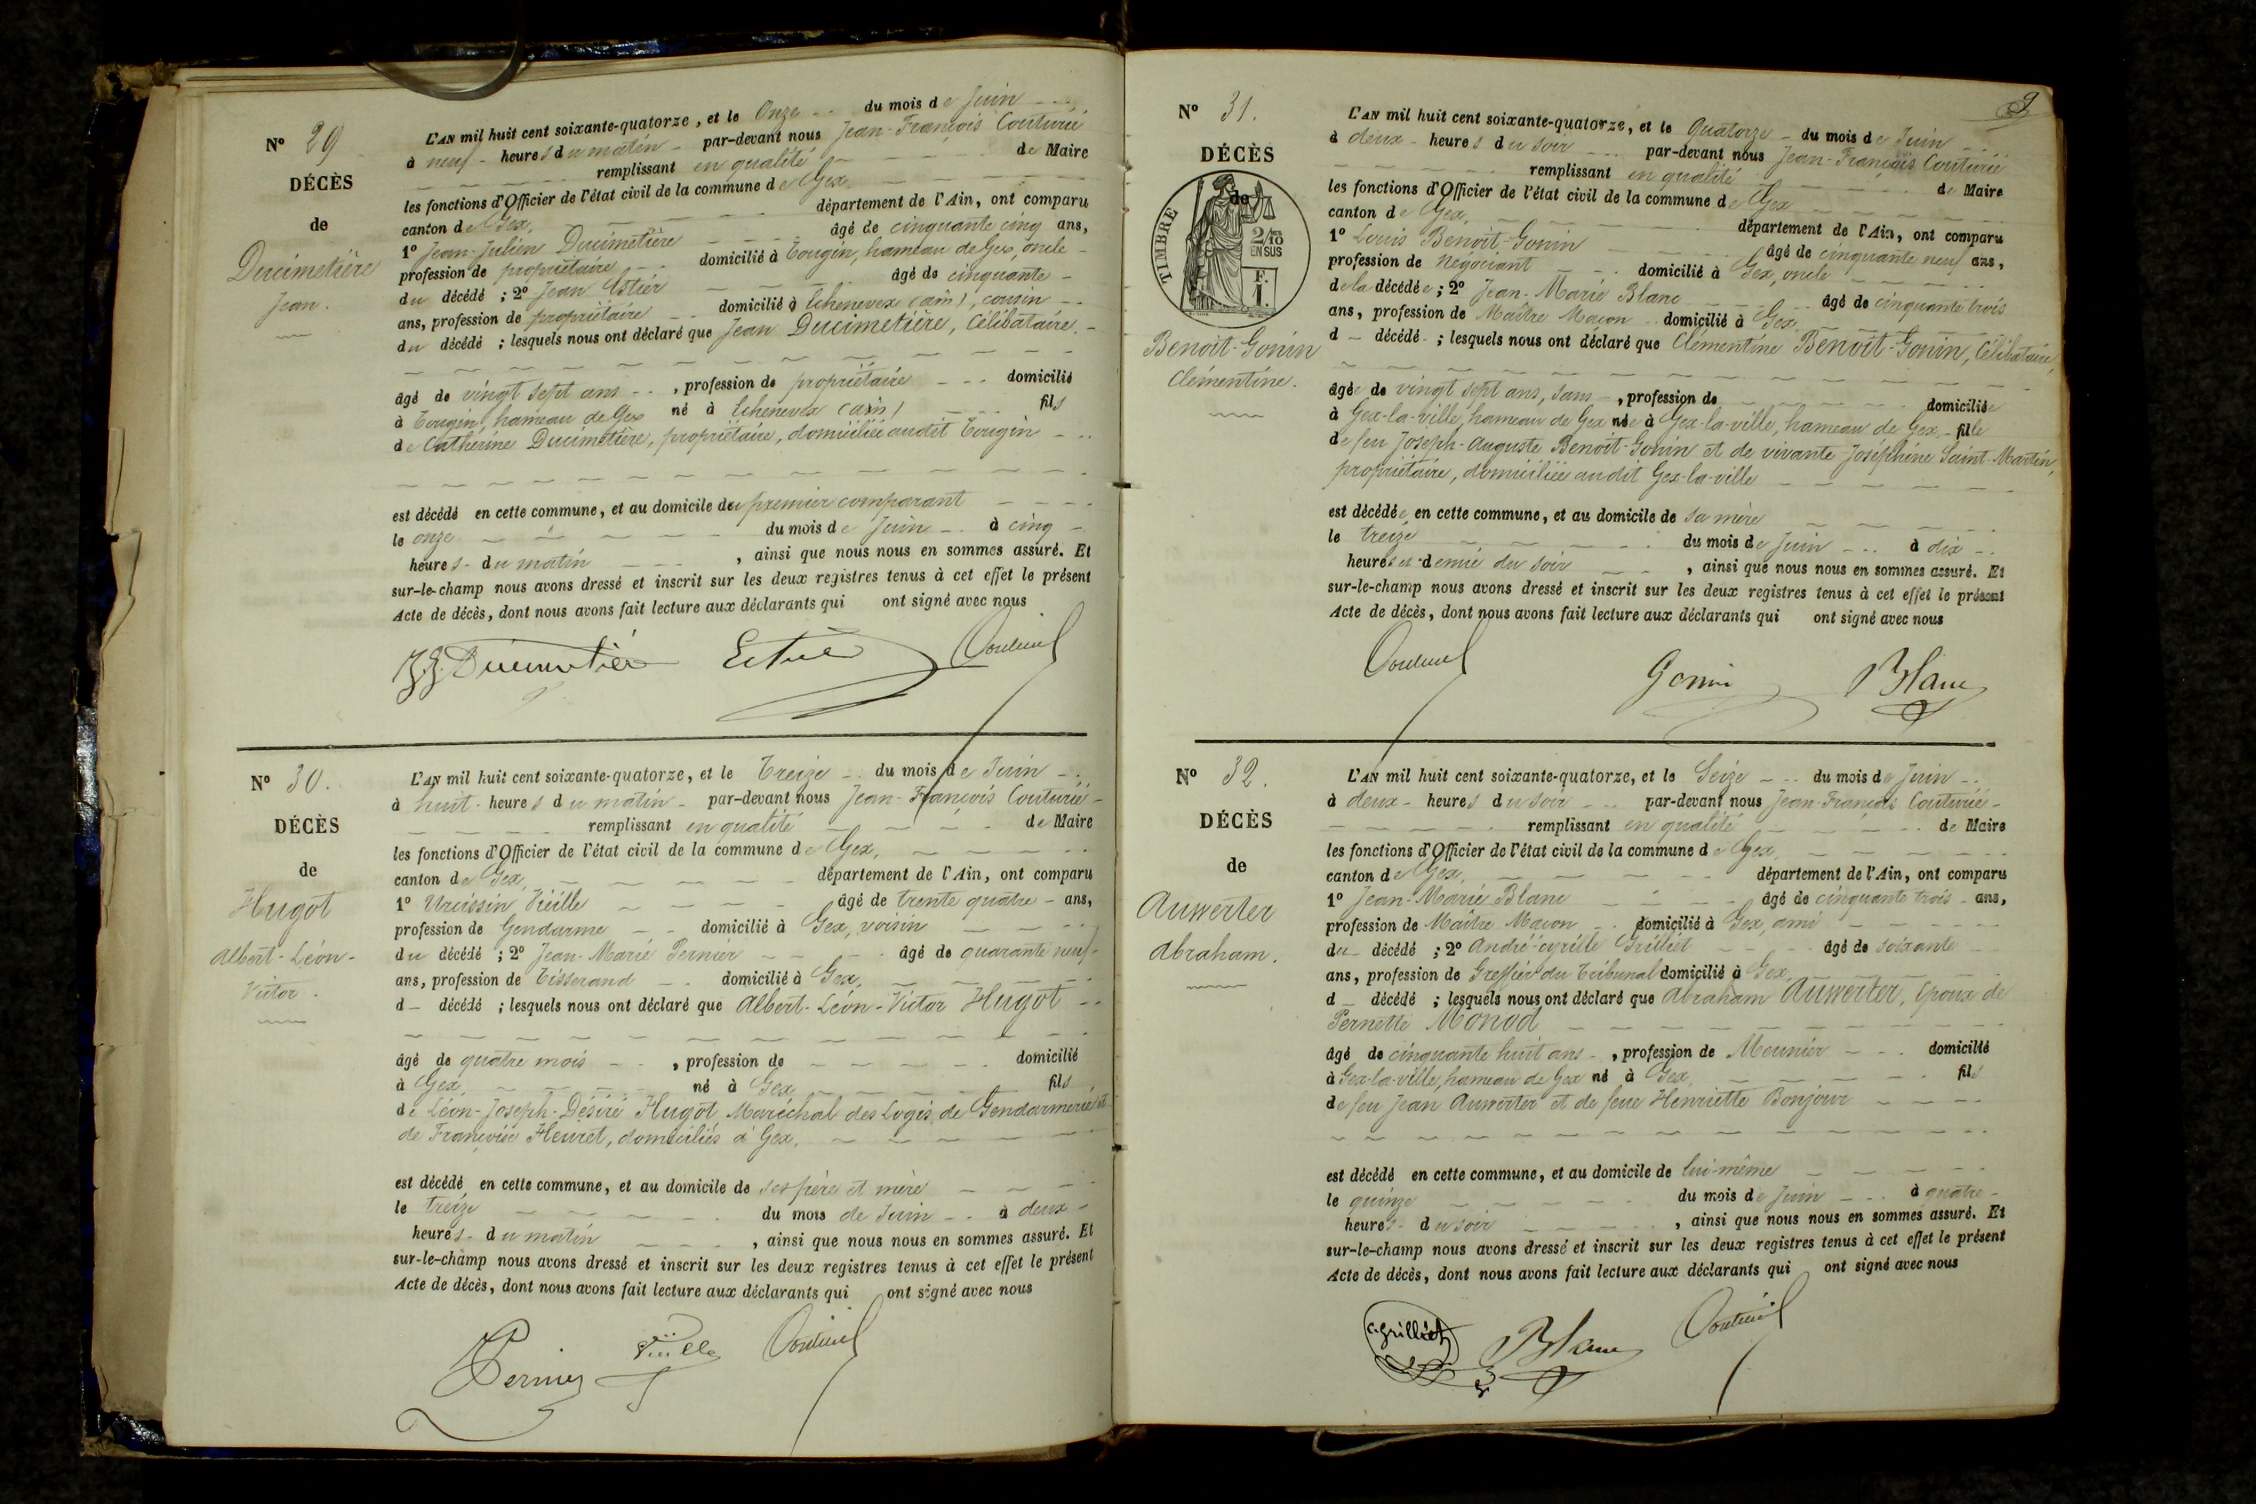 N° 29
DÉCÈS
de
Ducimetière
Jean.
L'AN mil huit cent soixante-quatorze, et le Onze du mois de Juin
à neuf heures du matin par-devant nous Jean-François Couturié
remplissant en qualité de Maire
les fonctions d'Officier de l'état civil de la commune de Gex
canton de Gex, département de l'Ain, ont comparu
1° Jean-Julien Ducimetière âgé de cinquante cinq ans,
profession de propriétaire domicilié à Tougin, hameau de Gex, oncle
du décédé ; 2° Jean Estier âgé de cinquante
ans, profession de propriétaire domicilié à Echenevex (ain), cousin
du décédé ; lesquels nous ont déclaré que Jean Ducimetière, Célibataire.
âgé de vingt sept ans, profession de propriétaire domicilié
à Tougin, hameau de Gex né à Echenevex (ain) fils
de Cathérine Ducimetière, propriétaire, domiciliée audit Tougin
est décédé en cette commune, et au domicile du premier comparant
le onze du mois de Juin à cinq
heures du matin, ainsi que nous nous en sommes assuré. Et
sur-le-champ nous avons dressé et inscrit sur les deux registres tenus à cet effet le présent
Acte de décès, dont nous avons fait lecture aux déclarants qui ont signé avec nous
JJ Ducimetière Estier Couturié
N° 30.
DÉCÈS
de
Hugot
Albert-Léon-
Victor.
L'AN mil huit cent soixante-quatorze, et le Treize du mois de Juin
à huit heures du matin par-devant nous Jean-François Couturié
remplissant en qualité de Maire
les fonctions d'Officier de l'état civil de la commune de Gex,
canton de Gex, département de l'Ain, ont comparu
1° Vieille âgé de trente quatre ans,
profession de Gendarme domicilié à Gex, voisin
du décédé ; 2° Jean-Marie Pernier âgé de quarante neuf
ans, profession de Tisserand domicilié à Gex,
d décédé ; lesquels nous ont déclaré que Albert-Léon-Victor Hugot
âgé de quatre mois, profession de domicilié
à Gex né à Gex, fils
de Léon-Joseph-Désiré Hugot, Maréchal des Logis de Gendarmerie et
de Françoise Heuret, domiciliés à Gex.
est décédé en cette commune, et au domicile de ses père et mère
le treize du mois de Juin à deux
heures du matin, ainsi que nous nous en sommes assuré. Et
sur-le-champ nous avons dressé et inscrit sur les deux registres tenus à cet effet le présent
Acte de décès, dont nous avons fait lecture aux déclarants qui ont signé avec nous
Pernier Vieille Couturié
9
N° 31.
DÉCÈS
de
TIMBRE
2/10
EN SUS
F.
1.
Benoit-Gonin
Clémentine.
L'AN mil huit cent soixante-quatorze, et le Quatorze du mois de Juin
à deux heures du soir par-devant nous Jean-François Couturié
remplissant en qualité de Maire
les fonctions d'Officier de l'état civil de la commune de Gex
canton de Gex, département de l'Ain, ont comparu
1° Louis Benoit-Gonin âgé de cinquante neuf ans,
profession de négociant domicilié à Gex, oncle
de la décédée ; 2° Jean-Marie Blanc âgé de cinquante trois
ans, profession de Maître Maçon domicilié à Gex
d décédé ; lesquels nous ont déclaré que Clémentine Benoit-Gonin, Célibataire,
âgée de vingt sept ans, sans, profession de domiciliée
à Gex-la-ville, hameau de Gex née à Gex-la-ville, hameau de Gex fille
de feu Joseph-Auguste Benoit-Gonin et de vivante Joséphine Saint-Martin,
propriétaire, domiciliée audit Gex-la-ville
est décédée en cette commune, et au domicile de sa mère
le treize du mois de Juin à dix
heures et demie du soir, ainsi que nous nous en sommes assuré. Et
sur-le-champ nous avons dressé et inscrit sur les deux registres tenus à cet effet le présent
Acte de décès, dont nous avons fait lecture aux déclarants qui ont signé avec nous
Couturié Gonin Blanc
N° 32.
DÉCÈS
de
Auwerter
Abraham.
L'AN mil huit cent soixante-quatorze, et le Seize du mois de Juin
à deux heures du soir par-devant nous Jean-François Couturié
remplissant en qualité de Maire
les fonctions d'Officier de l'état civil de la commune de Gex,
canton de Gex, département de l'Ain, ont comparu
1° Jean-Marie Blanc âgé de cinquante trois ans,
profession de Maître Maçon domicilié à Gex, ami
du décédé ; 2° André-Cyrille Grilliet âgé de soixante
ans, profession de Greffier du Tribunal domicilié à Gex,
d décédé ; lesquels nous ont déclaré que Abraham Auwerter, Epoux de
Pernette Monod
âgé de cinquante huit ans, profession de Meunier domicilié
à Gex-la-ville, hameau de Gex né à Gex, fils
de feu Jean Auwerter et de feue Henriette Bonjour
est décédé en cette commune, et au domicile de lui-même
le quinze du mois de Juin à quatre
heures du soir, ainsi que nous nous en sommes assuré. Et
sur-le-champ nous avons dressé et inscrit sur les deux registres tenus à cet effet le présent
Acte de décès, dont nous avons fait lecture aux déclarants qui ont signé avec nous
C. Grilliet Blanc Couturié